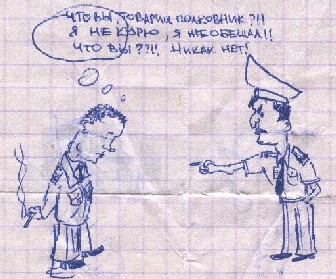 ЧТО ВЫ, ТОВАРИЩ ПОЛКОВНИК?!!
Я НЕ КУРЮ, Я ЖЕ ОБЕЩАЛ!!
ЧТО ВЫ??!!, НИКАК НЕТ!